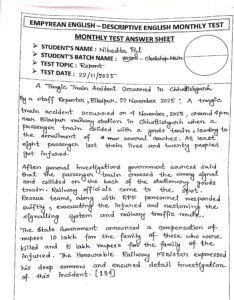 EMPYREAN ENGLISH – DESCRIPTIVE ENGLISH MONTHLY TEST
MONTHLY TEST ANSWER SHEET
➢ STUDENT'S NAME : Nibedita Pal
➢ STUDENT'S BATCH NAME : - Clerkship Main
➢ TEST TOPIC : Report
➢ TEST DATE : 22/11/2025
A Tragic Train Accident Occurred in Chhattishgarh
By a staff Reporter, Bilaspur, 22 November 2025 : A tragic
train accident occurred on 4 November, 2025, around 4pm
near Bilaspur railway station in Chhattisgarh when a
passenger train collided with a goods train, leading to
the derailment of several coaches. At least
eight passenger lost their lives and twenty peoples
got injured.
After general investigation government sources said
that the passenger train crossed the wrong signal
and collided on the back of the stationary goods
train. Railway officials came to the spot.
Rescue teams, along with RPF personnel responded
swiftly, evacuating the injured and restoring the
signalling system and railway traffic route.
The State Government announced a compensation of
rupees 10 lakh for the family of those who were
killed and 5 lakh rupees for the family of the
injured. The Honourable Railway Minister expressed
his deep sorrow and ensured detail investigation
of this incident.